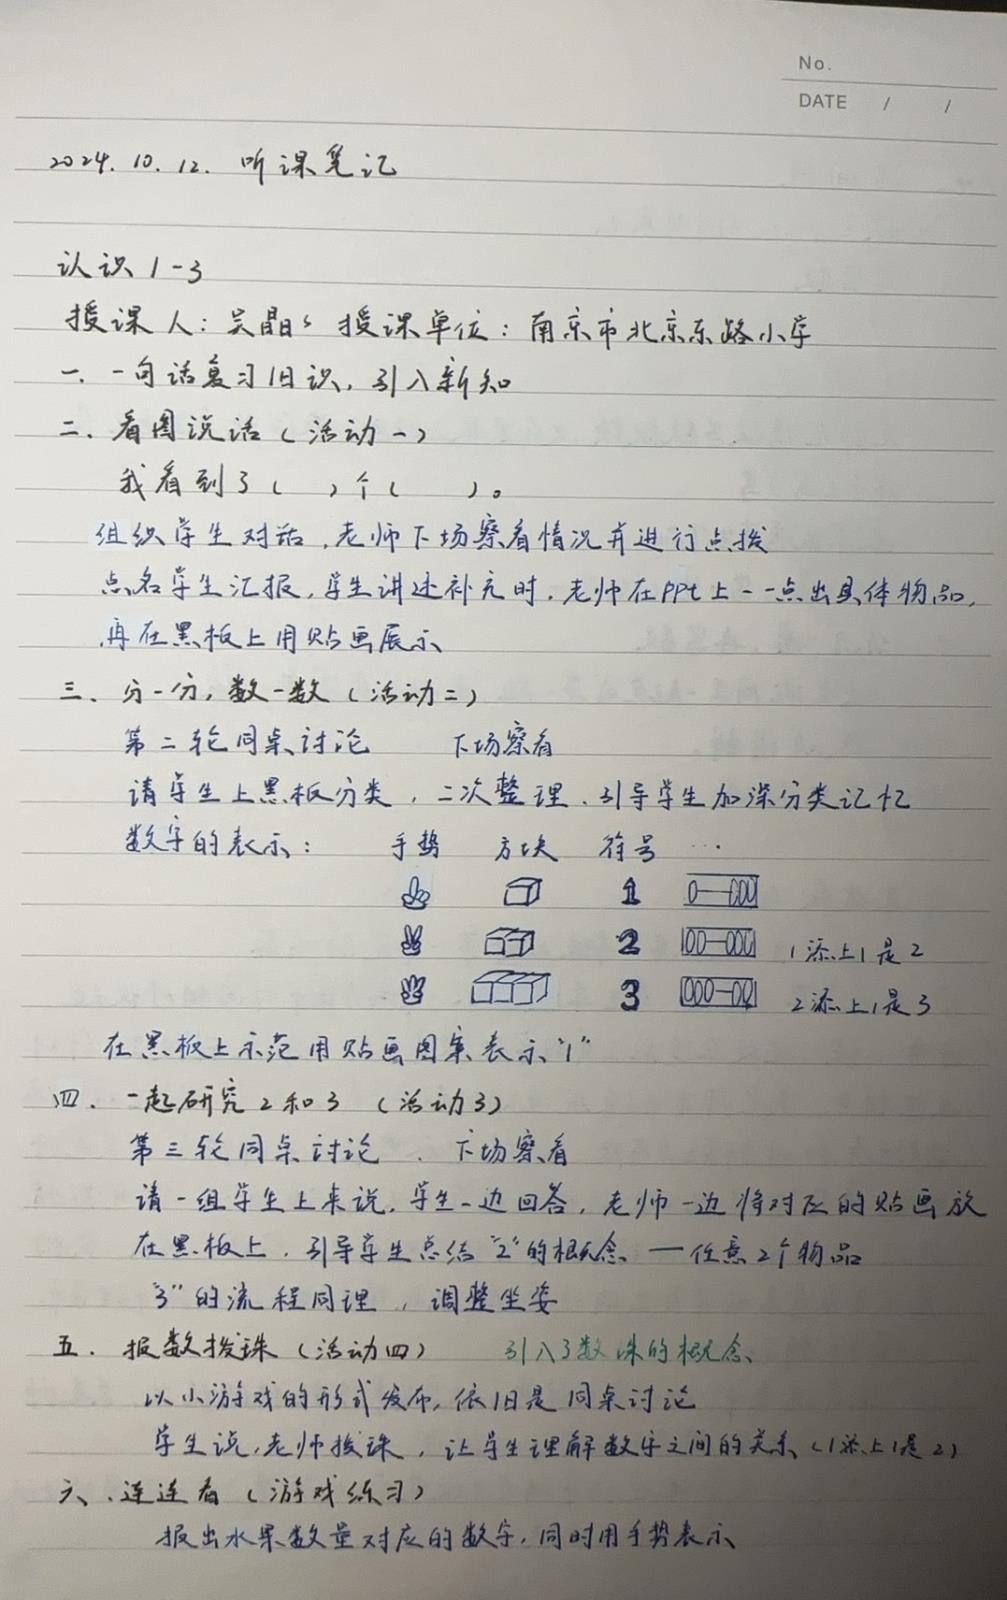 No.
DATE / /
2024.10.12. 听课笔记
认识1-3
授课人:吴晶 授课单位:南京市北京东路小学
一、一句话复习旧识,引入新知
二、看图说话(活动一)
我看到了( )个( )。
组织学生对话,老师下场察看情况并进行点拨
点名学生汇报,学生讲述补充时,老师在PPt上一一点出具体物品,
再在黑板上用贴画展示
三、分一分,数一数(活动二)
第二轮同桌讨论 下场察看
请学生上黑板分类,二次整理、引导学生加深分类记忆
数字的表示: 手势 方块 符号 …
1
2 1添上1是2
3 2添上1是3
在黑板上示范用贴画图案表示"1"
四、一起研究2和3 (活动3)
第三轮同桌讨论、下场察看
请一组学生上来说,学生一边回答,老师一边将对应的贴画放
在黑板上,引导学生总结"2"的概念 — 任意2个物品
"3"的流程同理,调整坐姿
五、报数拨珠(活动四) 引入了数珠的概念
以小游戏的形式发布,依旧是同桌讨论
学生说,老师拨珠,让学生理解数字之间的关系(1添上1是2)
六、连连看(游戏练习)
报出水果数量对应的数字,同时用手势表示